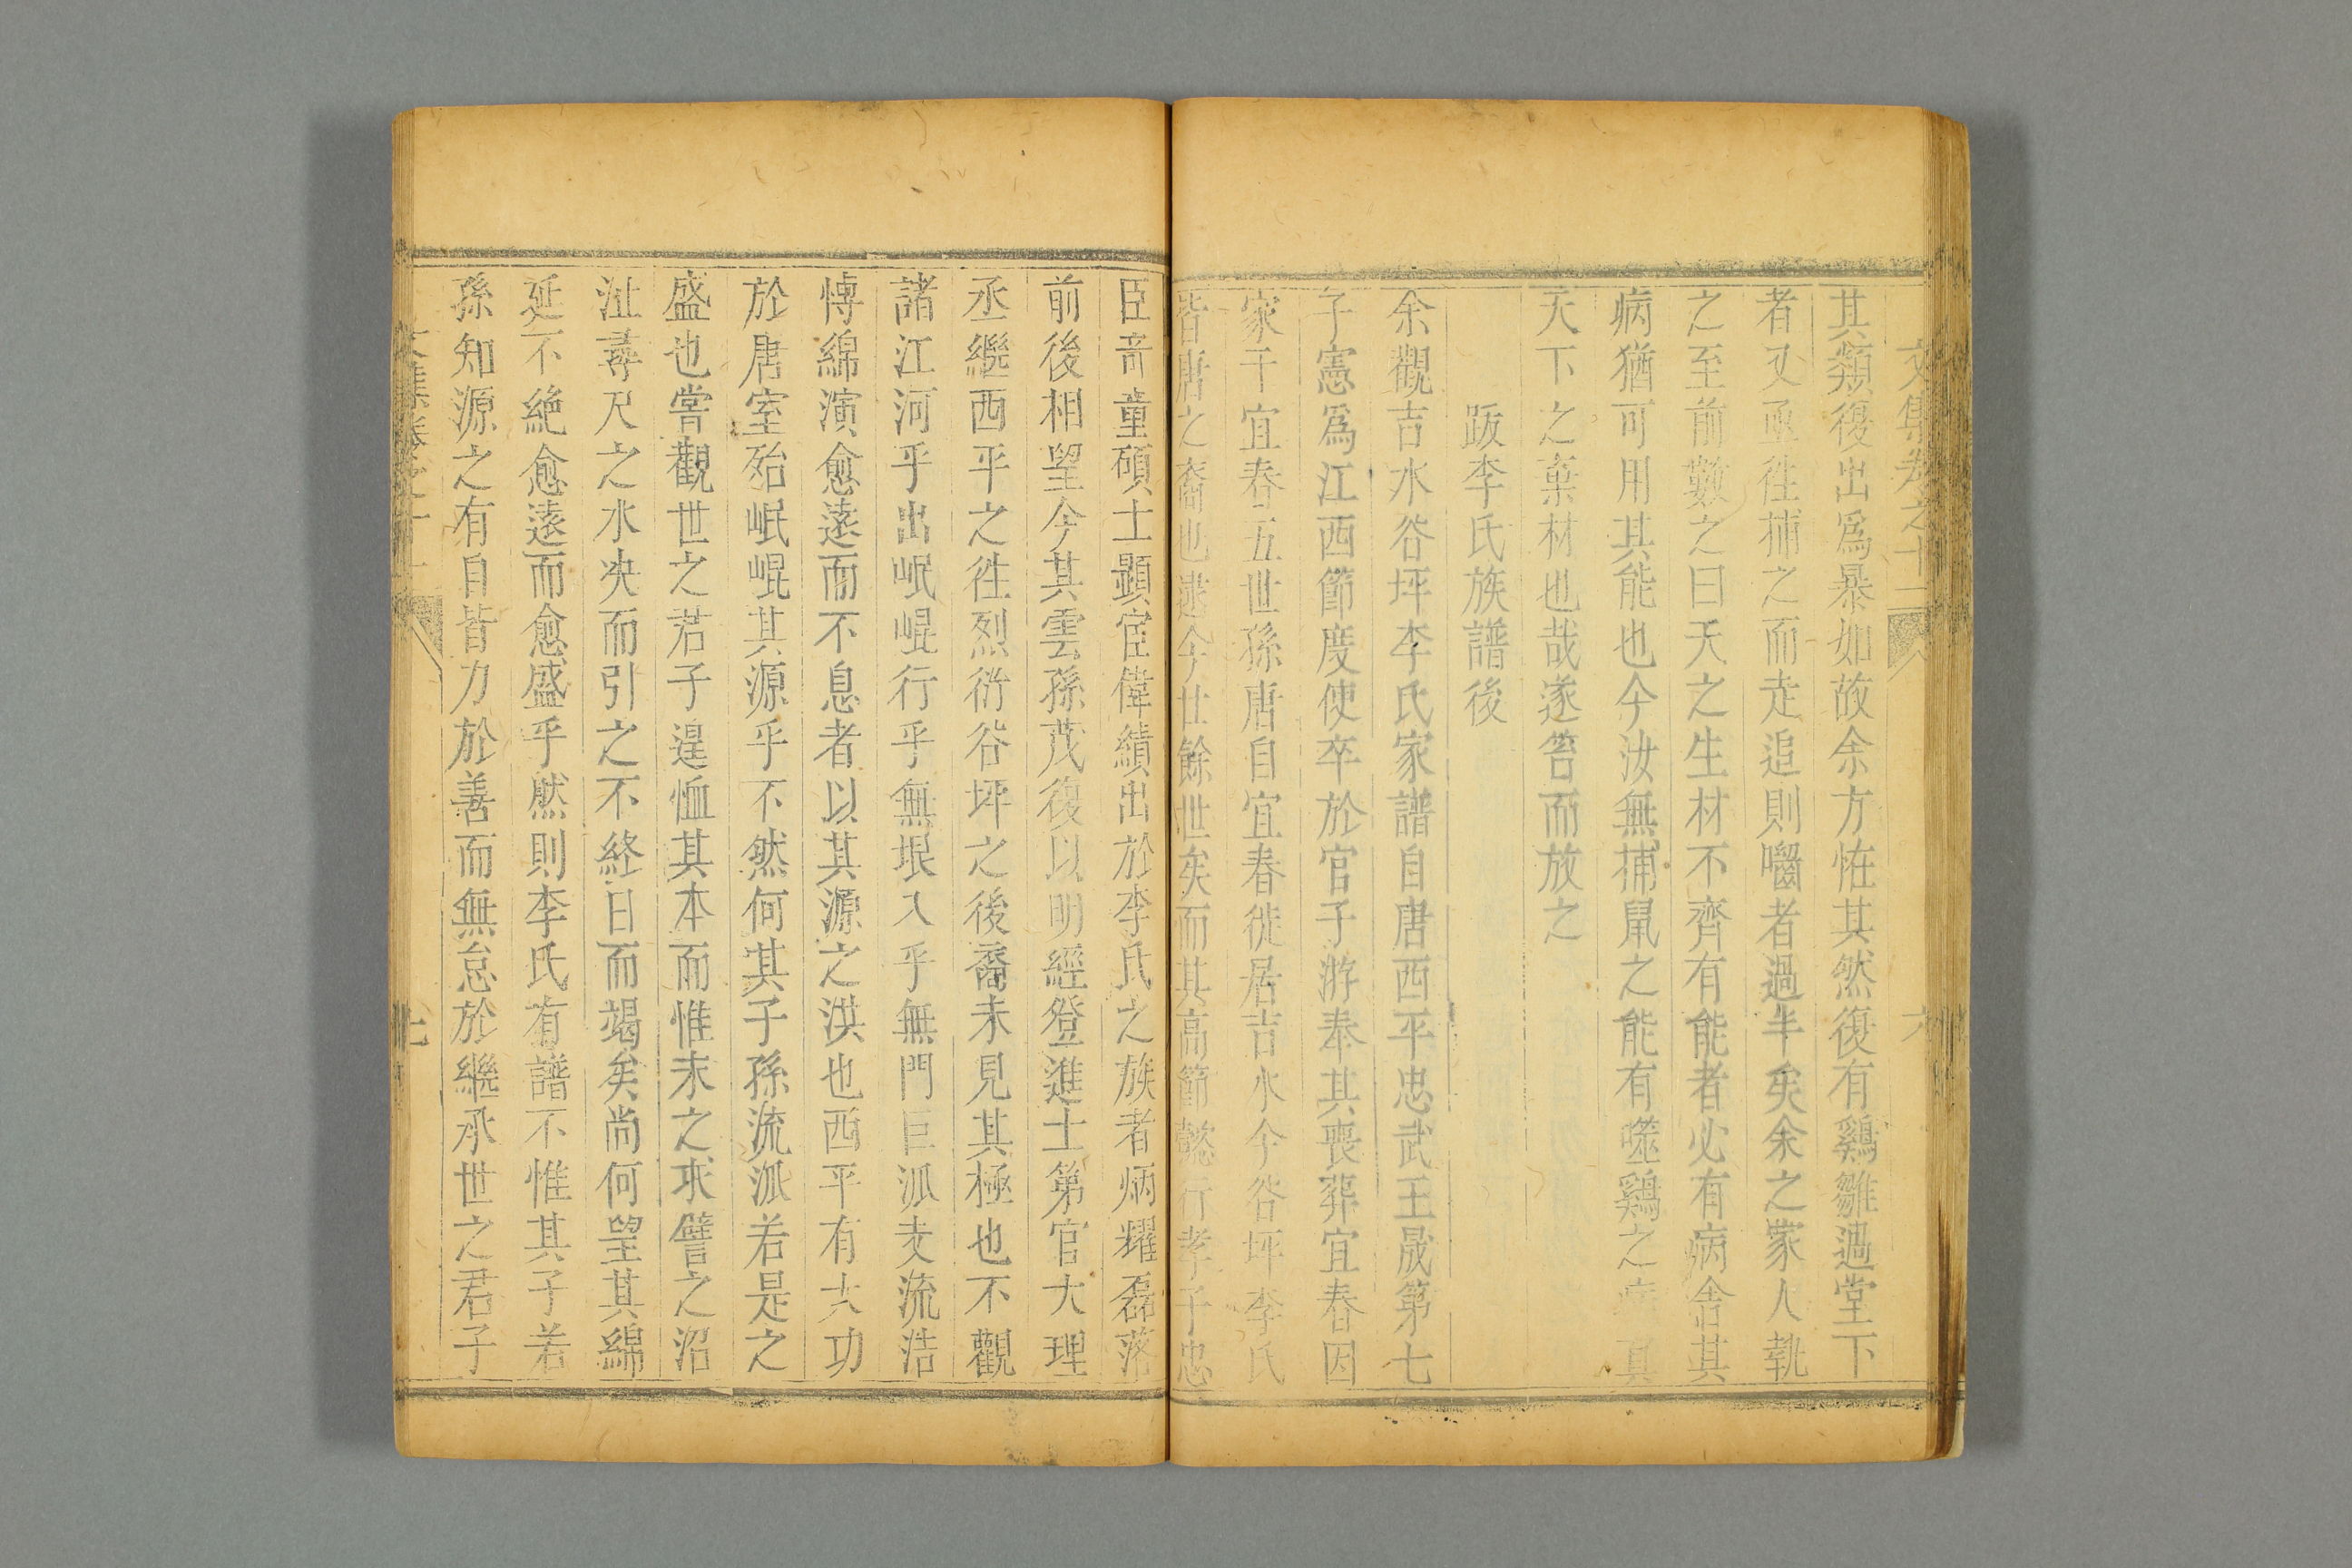 文集卷之十一 六
其類復出爲暴如故余方恠其然復有鷄雛過堂下
者又亟徃捕之而走追則嚙者過半矣余之家人執
之至前數之曰天之生材不齊有能者必有病舍其
病猶可用其能也今汝無捕鼠之能有噬鷄之病真
天下之棄材也哉遂笞而放之
跋李氏族譜後
余觀吉水谷坪李氏家譜自唐西平忠武王晟第七
子憲爲江西節度使卒於官子游奉其喪葬宜春因
家于宜春五世孫唐自宜春徙居吉水今谷坪李氏
皆唐之裔也逮今廿餘世矣而其高節懿行孝子忠
臣竒童碩士顯宦偉績出於李氏之族者炳耀磊落
前後相望今其雲孫茂復以明經登進士第官大理
丞繼西平之徃烈衍谷坪之後裔未見其極也不觀
諸江河乎出岷崐行乎無垠入乎無門巨派支流浩
愽綿演愈遠而不息者以其源之洪也西平有大功
於唐室殆岷崐其源乎不然何其子孫流派若是之
盛也嘗觀世之君子遑恤其本而惟末之求譬之沼
沚尋尺之水决而引之不終日而竭矣尚何望其綿
延不絶愈遠而愈盛乎然則李氏有譜不惟其子若
孫知源之有自皆力於善而無怠於繼承世之君子
文集卷之十一 七